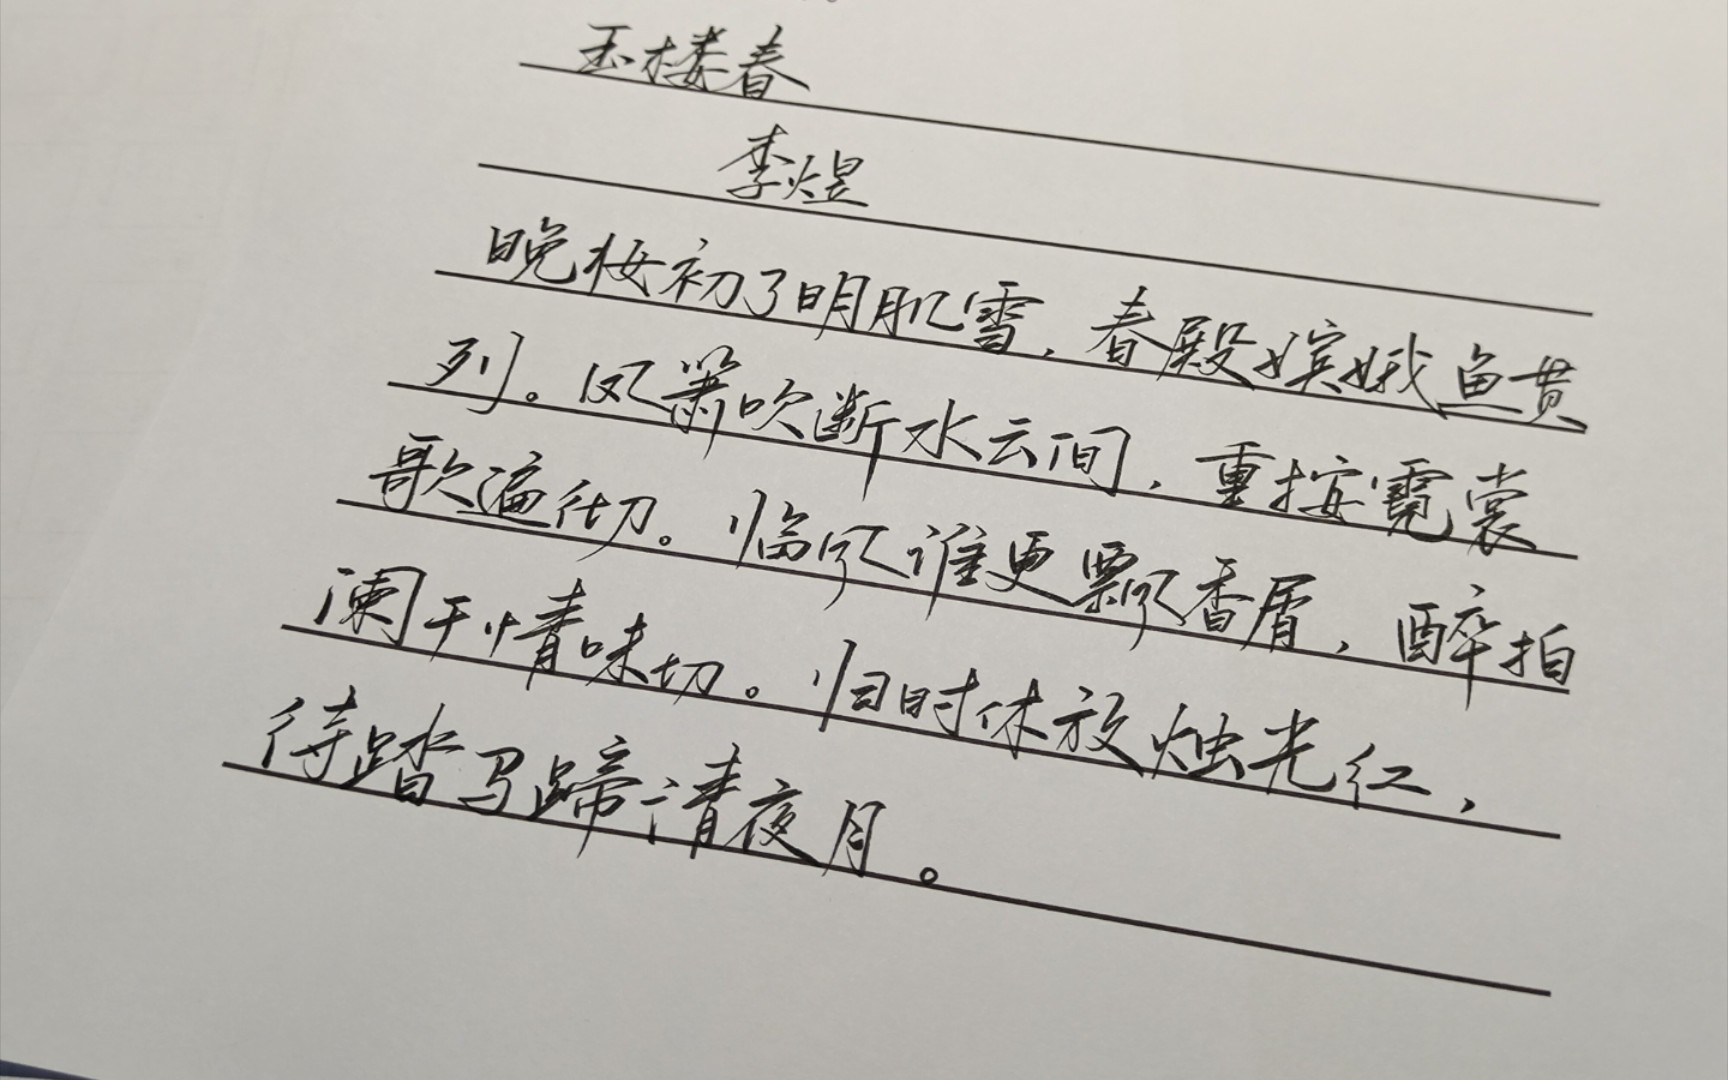 玉楼春
李煜
晚妆初了明肌雪，春殿嫔娥鱼贯
列。凤箫吹断水云间，重按霓裳
歌遍彻。临风谁更飘香屑，醉拍
阑干情味切。归时休放烛光红，
待踏马蹄清夜月。